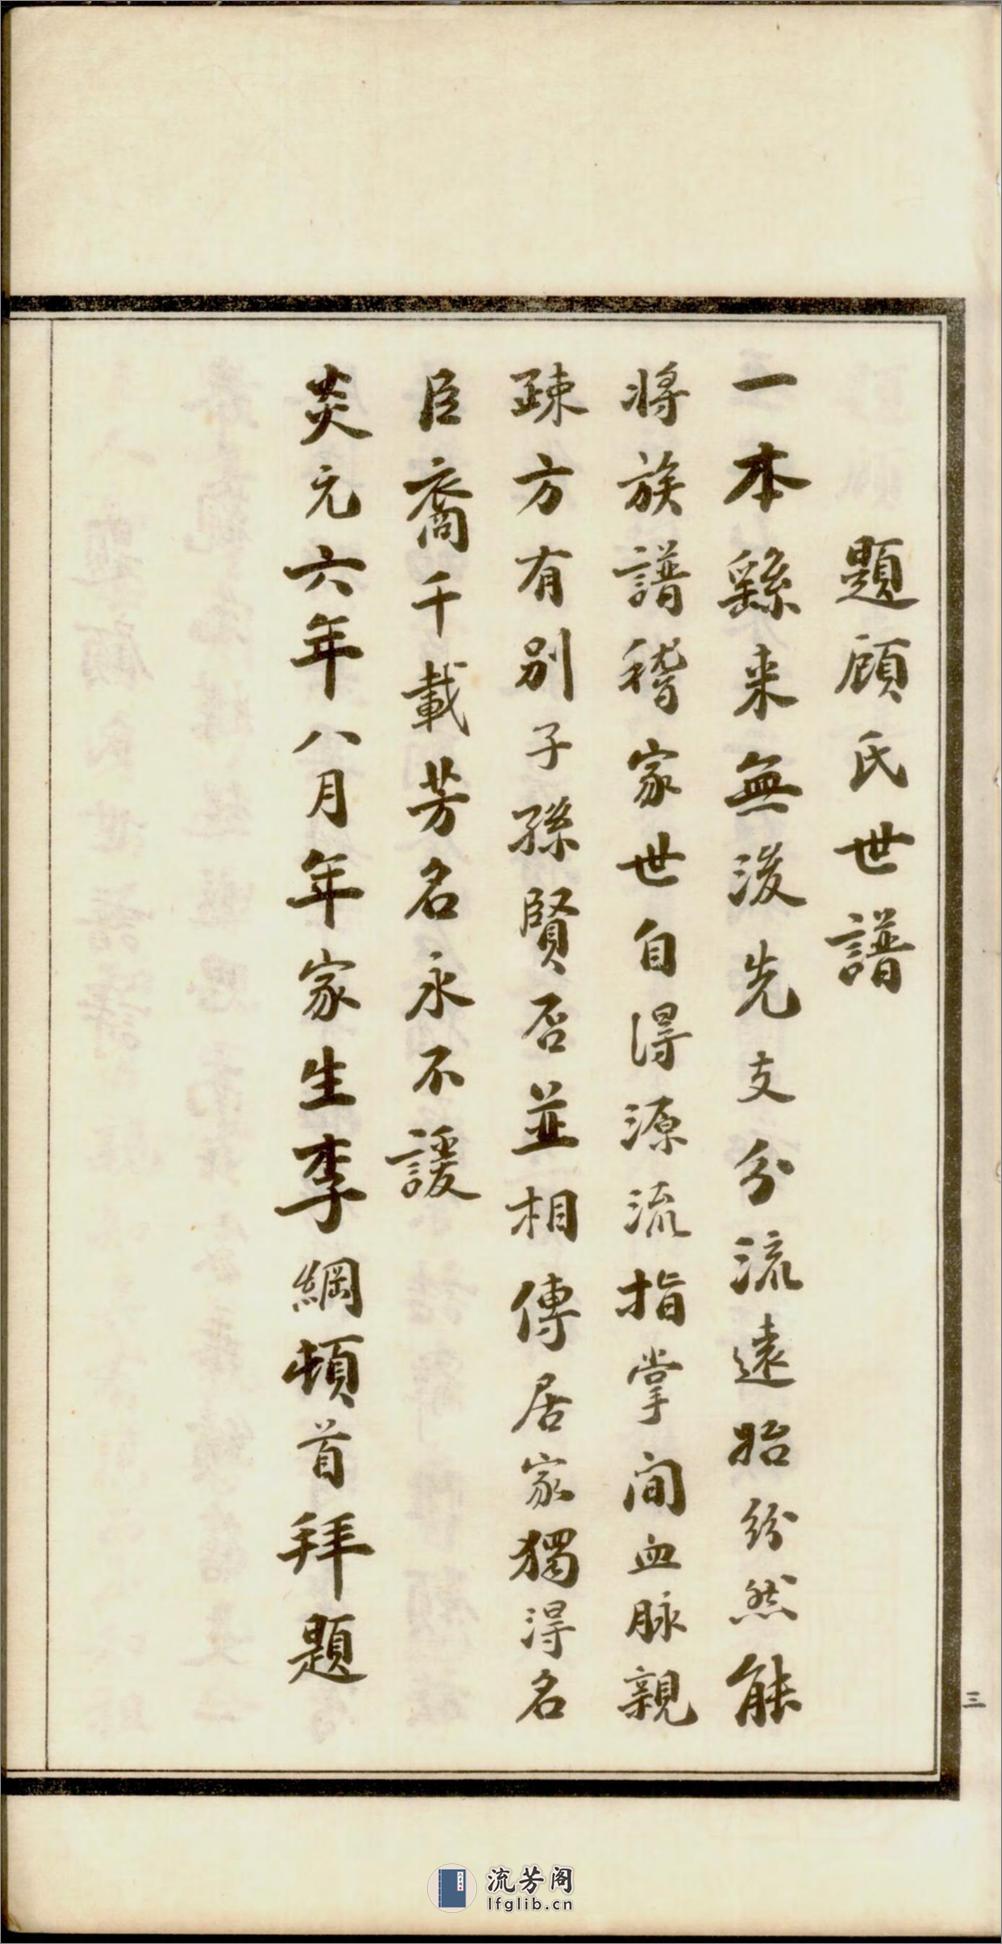 題顧氏世譜
一本繇来無後先支分流遠始紛然能
将族譜稽家世自得源流指掌间血脉親
疎方有别子孫賢否並相傳居家獨得名
臣裔千載芳名永不諼
炎元六年八月年家生李綱頓首拜題
三
流芳阁
lfglib.cn